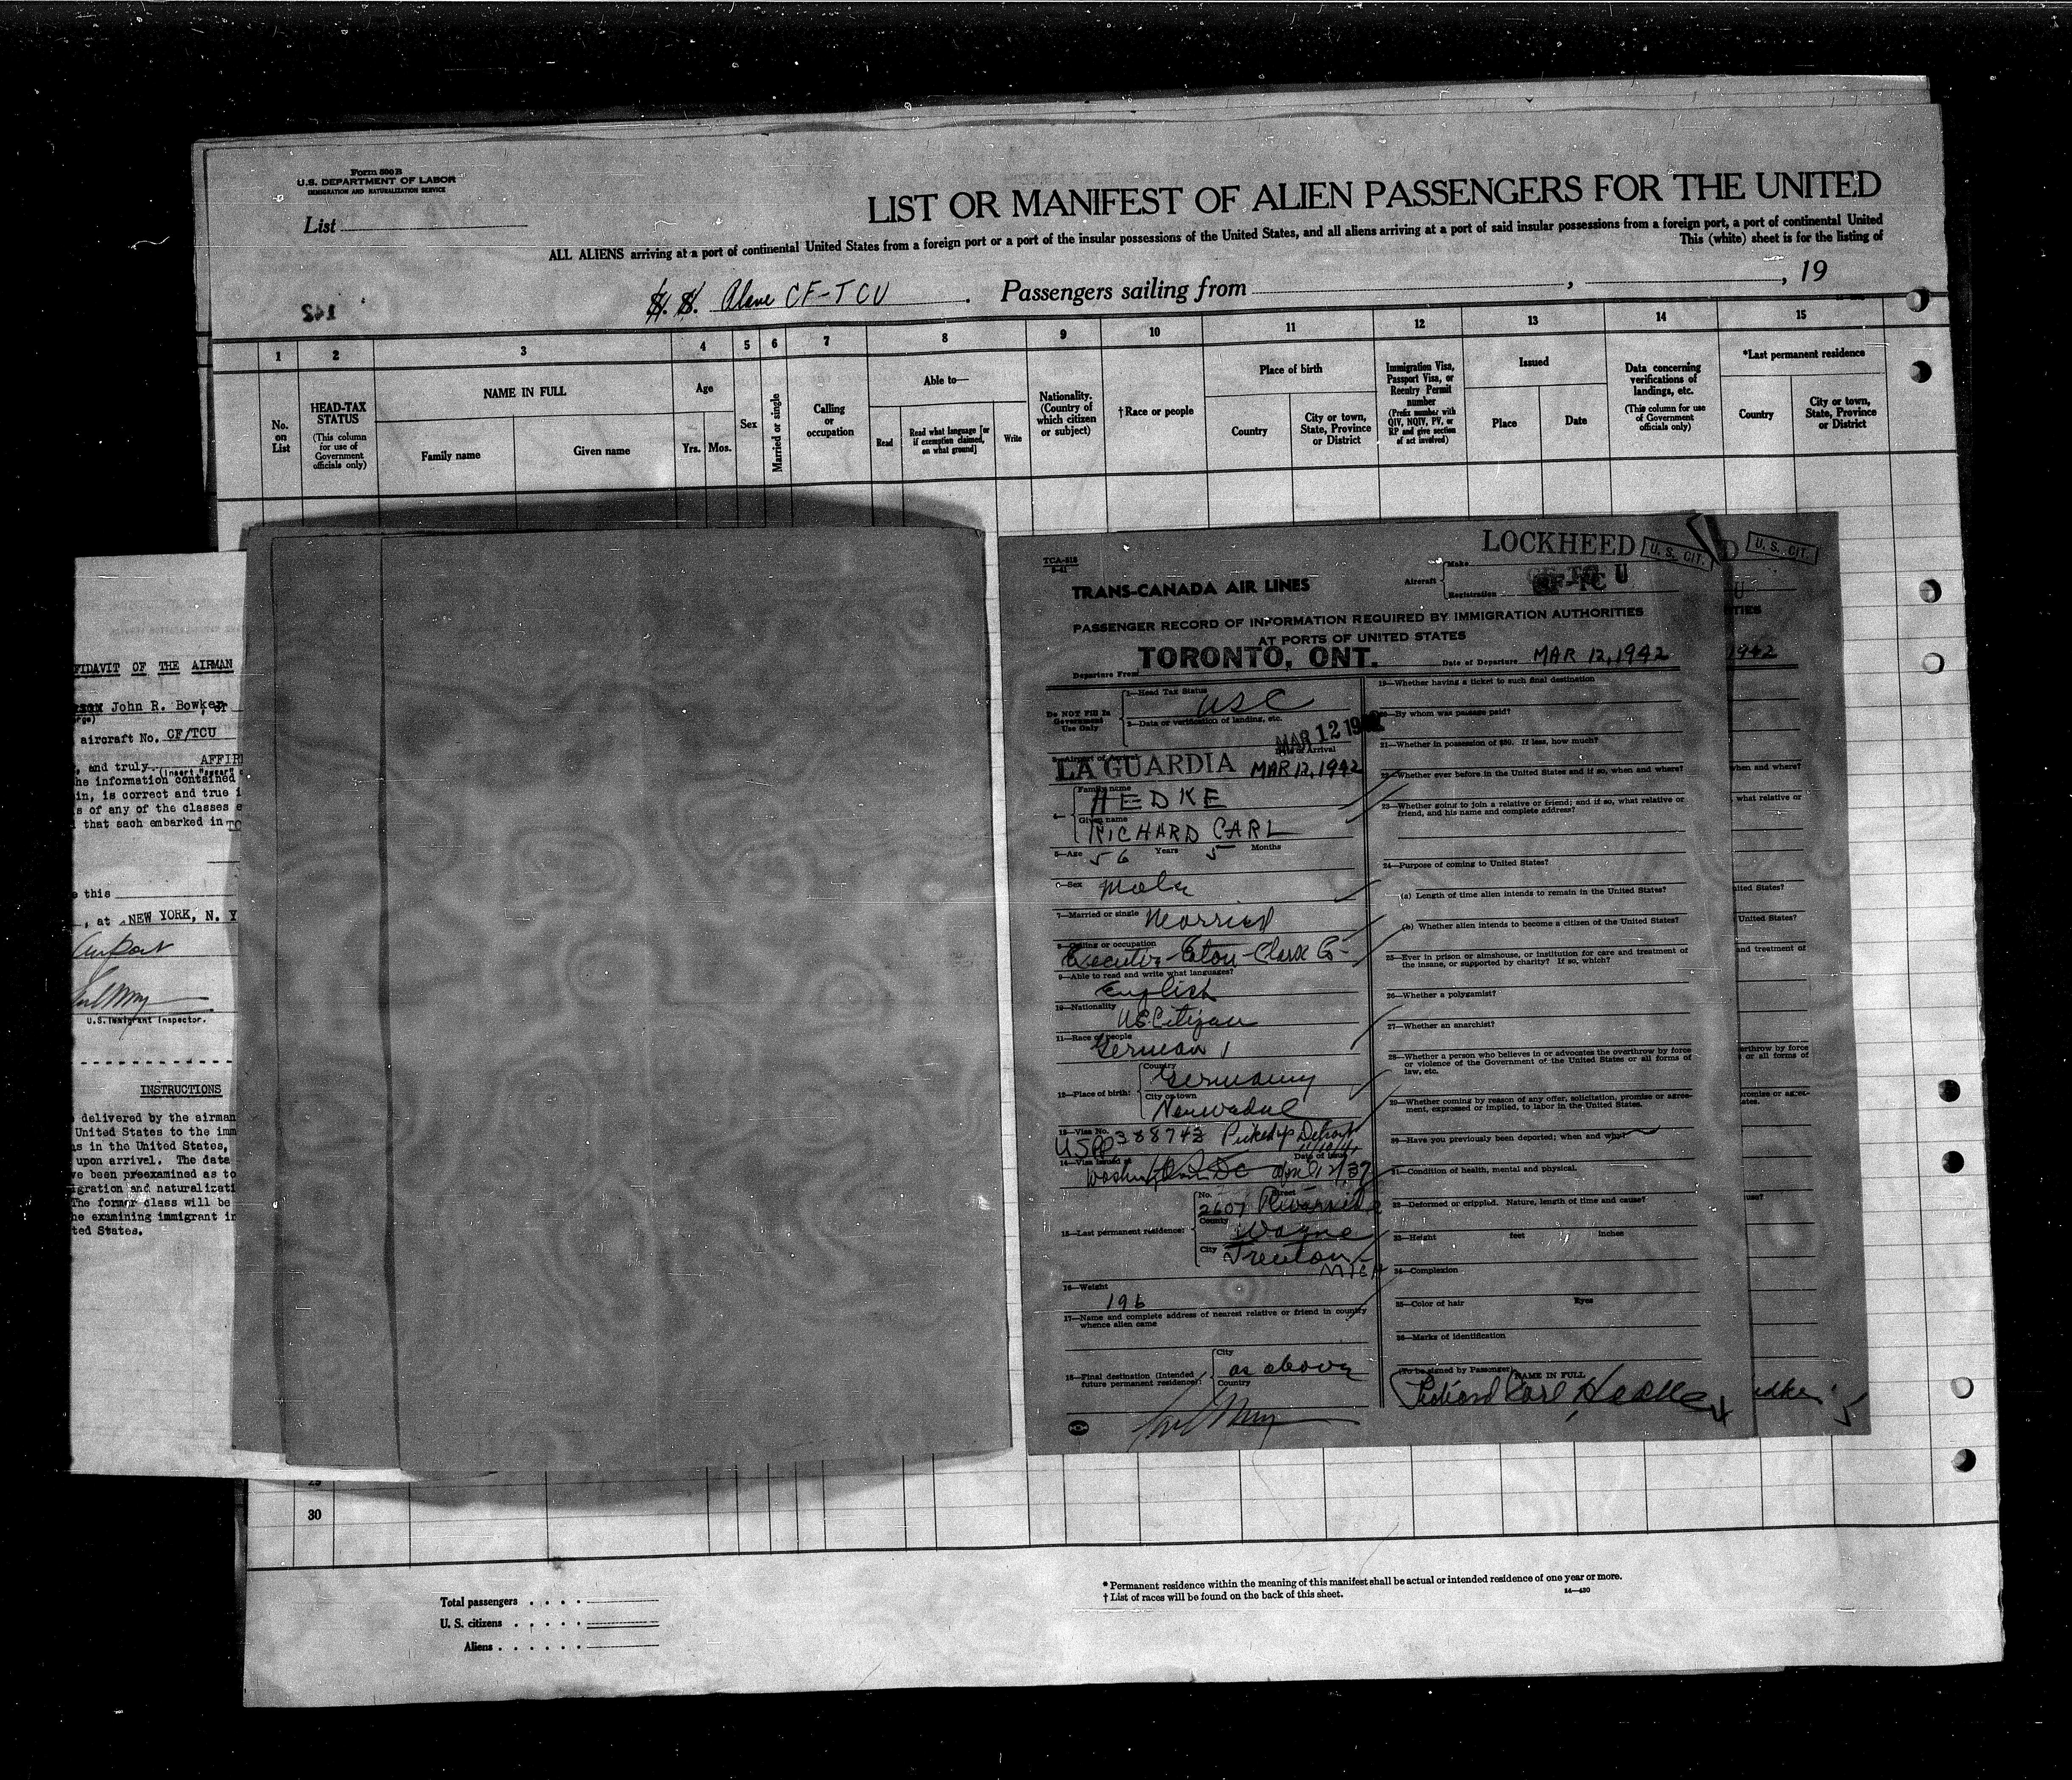 Form 500 B
U.S. DEPARTMENT OF LABOR
IMMIGRATION AND NATURALIZATION SERVICE
List
LIST OR MANIFEST OF ALIEN PASSENGERS FOR THE UNITED
ALL ALIENS arriving at a port of continental United States from a foreign port or a port of the insular possessions of the United States, and all aliens arriving at a port of said insular possessions from a foreign port, a port of continental United
This (white) sheet is for the listing of
S. S. Plane CF-TCU . Passengers sailing from , , 19
142
1 2 3 4 5 6 7 8 9 10 11 12 13 14 15
No. on List
HEAD-TAX STATUS
(This column for use of Government officials only)
NAME IN FULL
Family name Given name
Age
Yrs. Mos.
Sex
Married or single
Calling or occupation
Able to—
Read
Read what language [or if exemption claimed, on what ground]
Write
Nationality. (Country of which citizen or subject)
†Race or people
Place of birth
Country
City or town, State, Province or District
Immigration Visa, Passport Visa, or Reentry Permit number
(Prefix number with QIV, NQIV, PV, or RP and give section of act involved)
Issued
Place Date
Data concerning verifications of landings, etc.
(This column for use of Government officials only)
*Last permanent residence
Country
City or town, State, Province or District
FIDAVIT OF THE AIRMAN
John R. Bowker, or
aircraft No. CF/TCU
, and truly AFFIR
(Insert "swear" o
he information contained
in, is correct and true i
s of any of the classes e
that each embarked in TO
e this
, at NEW YORK, N. Y
Airport
U.S. Immigrant Inspector.
INSTRUCTIONS
delivered by the airman
United States to the imm
ns in the United States,
upon arrival. The date
ve been preexamined as to
igration and naturalizati
The former class will be
he examining immigrant in
ted States.
TCA-518
TRANS-CANADA AIR LINES
Aircraft
Make LOCKHEED
U. S. CIT.
D U. S. CIT.
Registration CF-TC U
U
PASSENGER RECORD OF INFORMATION REQUIRED BY IMMIGRATION AUTHORITIES
AT PORTS OF UNITED STATES
TIES
Departure From TORONTO, ONT. Date of Departure MAR 12, 1942
1942
Do NOT Fill In
Government
Use Only
1—Head Tax Status USC
2—Data or verification of landing, etc.
MAR 12 1942
3—Airport of Arrival LA GUARDIA
Date of Arrival MAR 12, 1942
4—
Family name HEDKE
Given name RICHARD CARL
5—Age 56 Years 5 Months
6—Sex Male
7—Married or single Married
8—Calling or occupation
Executive-Eaton-Clark Co
9—Able to read and write what languages?
English
10—Nationality
US Citizen
11—Race of people
German
12—Place of birth:
Country Germany
City or town
13—Visa No.
USPP 388743 Picked up Detroit
14—Visa issued at Date of Issue
Washington DC April 2/37
15—Last permanent residence:
No. Street
2607
County Wayne
City Trenton
MICH
16—Weight
196
17—Name and complete address of nearest relative or friend in country
whence alien came
18—Final destination (Intended
future permanent residence):
City as above
Country
19—Whether having a ticket to such final destination
20—By whom was passage paid?
21—Whether in possession of $50. If less, how much?
22—Whether ever before in the United States and if so, when and where?
when and where?
23—Whether going to join a relative or friend; and if so, what relative or
friend, and his name and complete address?
what relative or
24—Purpose of coming to United States?
(a) Length of time alien intends to remain in the United States?
United States?
(b) Whether alien intends to become a citizen of the United States?
United States?
25—Ever in prison or almshouse, or institution for care and treatment of
the insane, or supported by charity? If so, which?
and treatment of
26—Whether a polygamist?
27—Whether an anarchist?
28—Whether a person who believes in or advocates the overthrow by force
or violence of the Government of the United States or all forms of
law, etc.
erthrow by force
or all forms of
29—Whether coming by reason of any offer, solicitation, promise or agree-
ment, expressed or implied, to labor in the United States.
promise or agree-
ates.
30—Have you previously been deported; when and why?
31—Condition of health, mental and physical.
32—Deformed or crippled. Nature, length of time and cause?
use?
33—Height feet inches
34—Complexion
35—Color of hair Eyes
36—Marks of identification
(To be signed by Passenger) NAME IN FULL
Richard Carl Hedke
edke
29
30
Total passengers
U. S. citizens
Aliens
* Permanent residence within the meaning of this manifest shall be actual or intended residence of one year or more.
† List of races will be found on the back of this sheet.
14—430